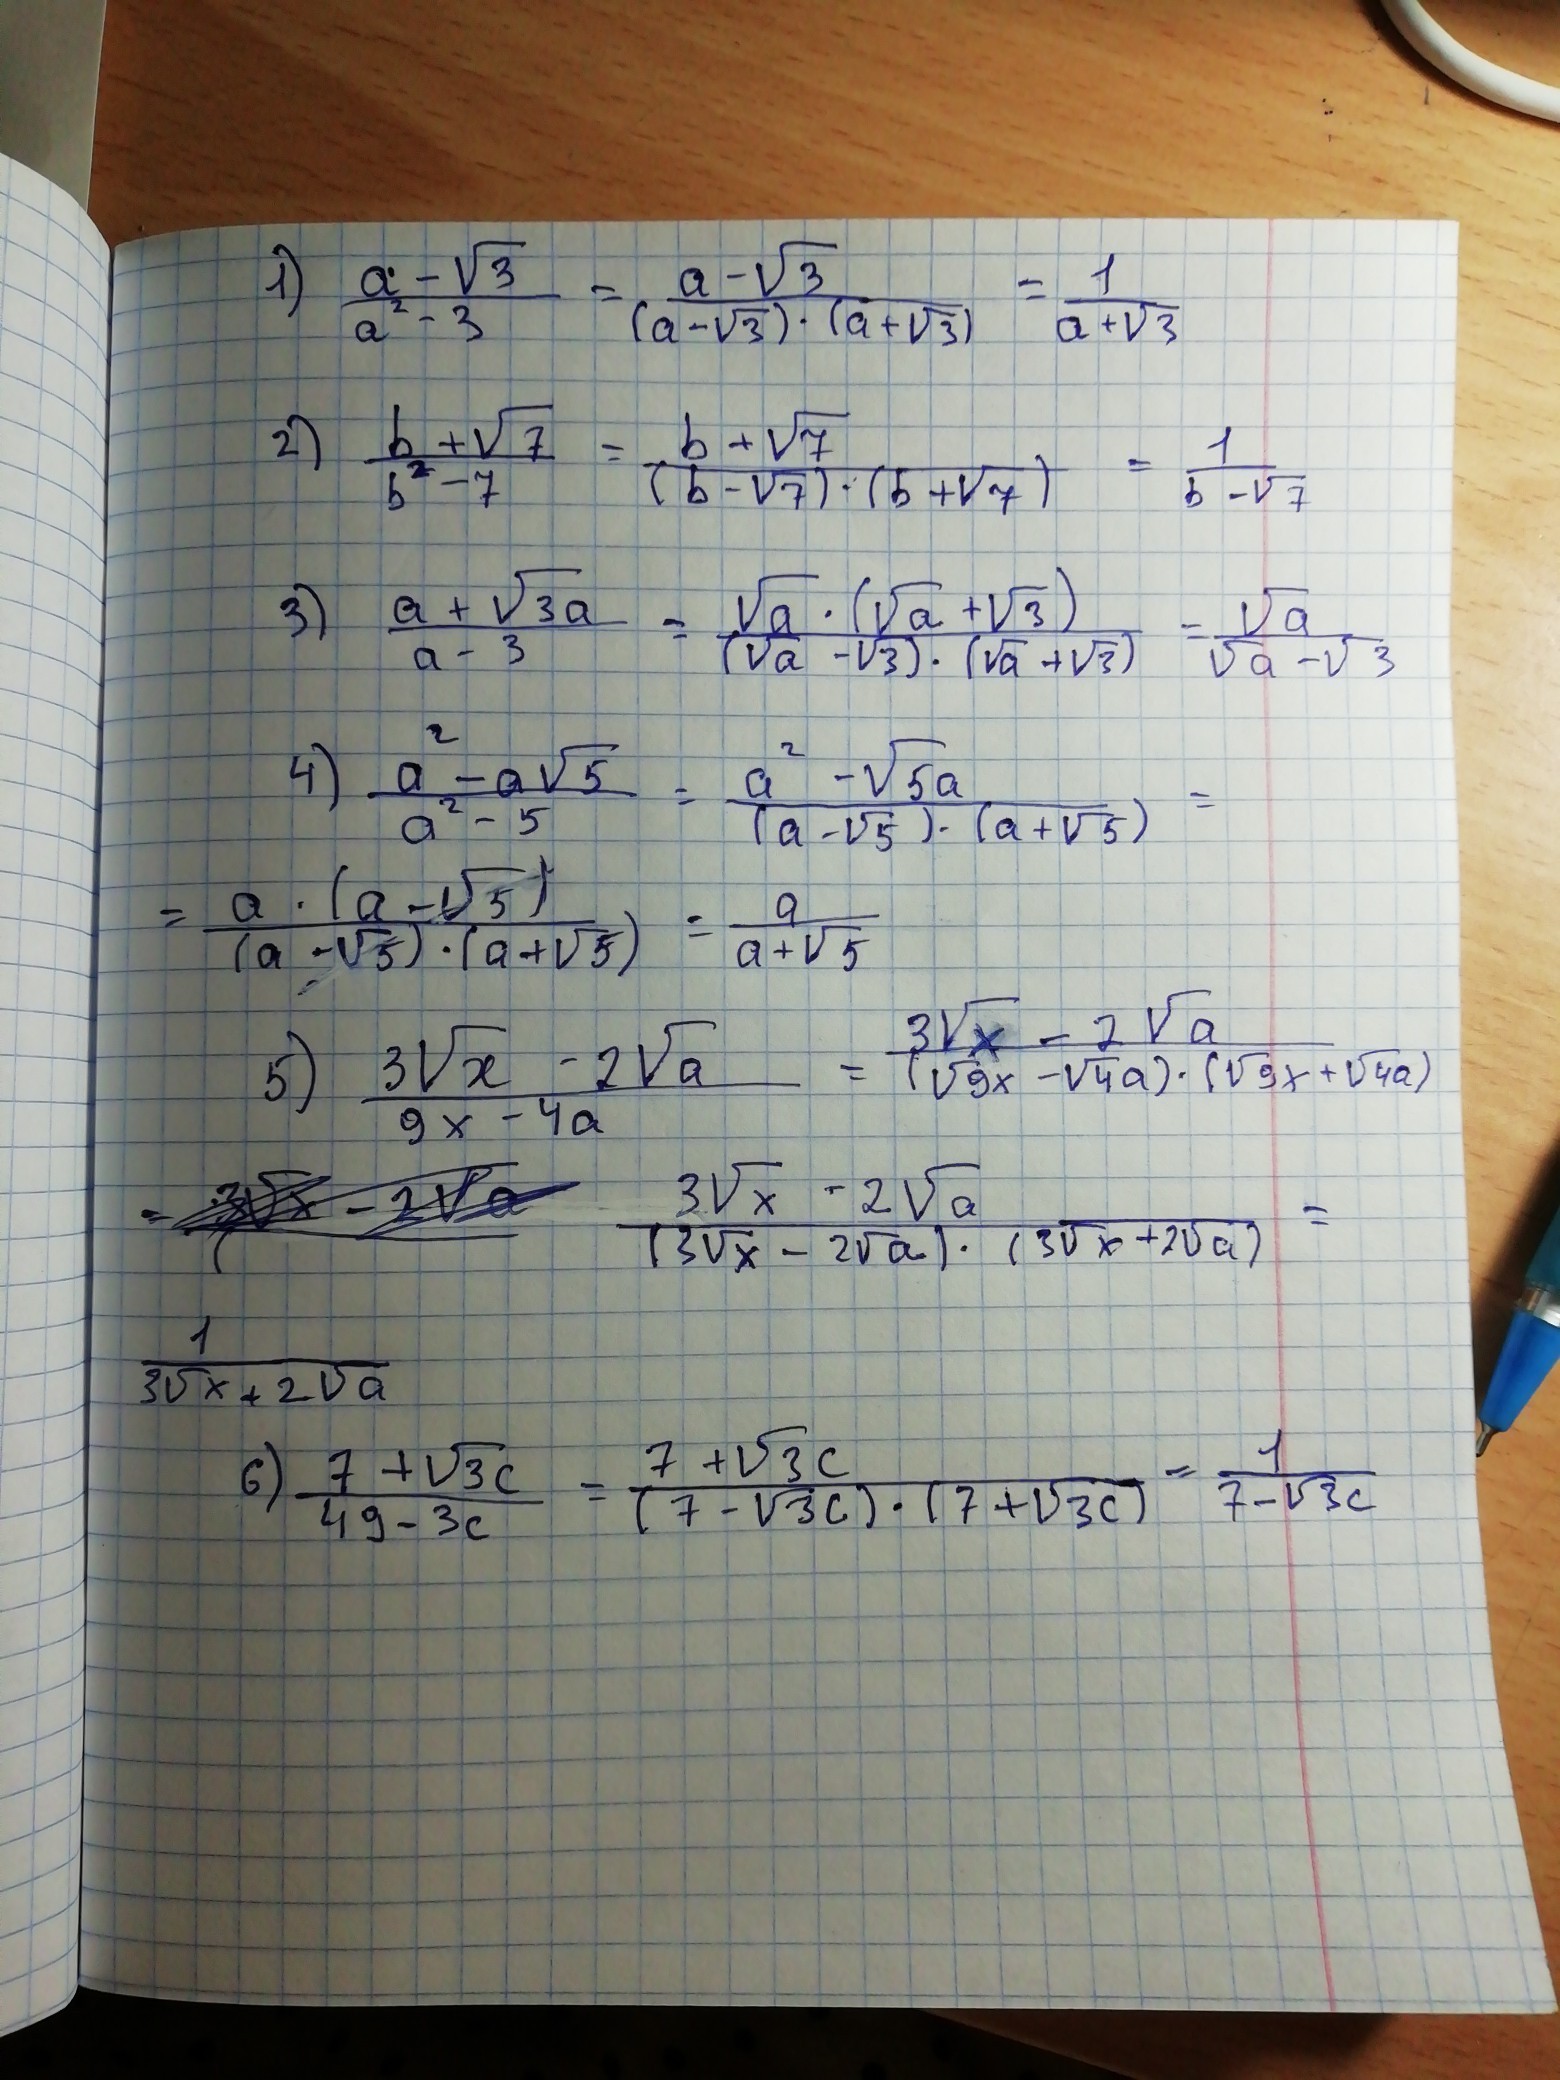 1) (a - √3)/(a² - 3) = (a - √3)/((a - √3) · (a + √3)) = 1/(a + √3)
2) (b + √7)/(b² - 7) = (b + √7)/((b - √7) · (b + √7)) = 1/(b - √7)
3) (a + √3a)/(a - 3) = (√a · (√a + √3))/((√a - √3) · (√a + √3)) = √a/(√a - √3)
4) (a² - a√5)/(a² - 5) = (a² - √5a)/((a - √5) · (a + √5)) =
= (a · (a - √5))/((a - √5) · (a + √5)) = a/(a + √5)
5) (3√x - 2√a)/(9x - 4a) = (3√x - 2√a)/((√9x - √4a) · (√9x + √4a))
= (3√x - 2√a)/((3√x - 2√a) · (3√x + 2√a)) =
1/(3√x + 2√a)
6) (7 + √3c)/(49 - 3c) = (7 + √3c)/((7 - √3c) · (7 + √3c)) = 1/(7 - √3c)